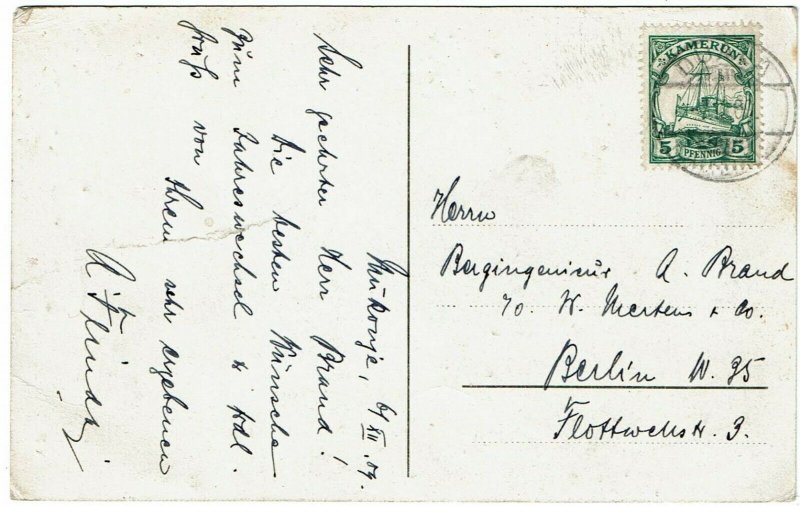 Mukonje, 6/XII.09.
Sehr geehrter Herr Brand!
Die besten Wünsche
zum Jahreswechsel u. frdl.
Gruß von Ihrem sehr ergebenen
KAMERUN
5 PFENNIG 5
Herrn
Bergingenieur A. Brand
W. Mertens & Co.
Berlin W. 35
Flottwellstr. 3.